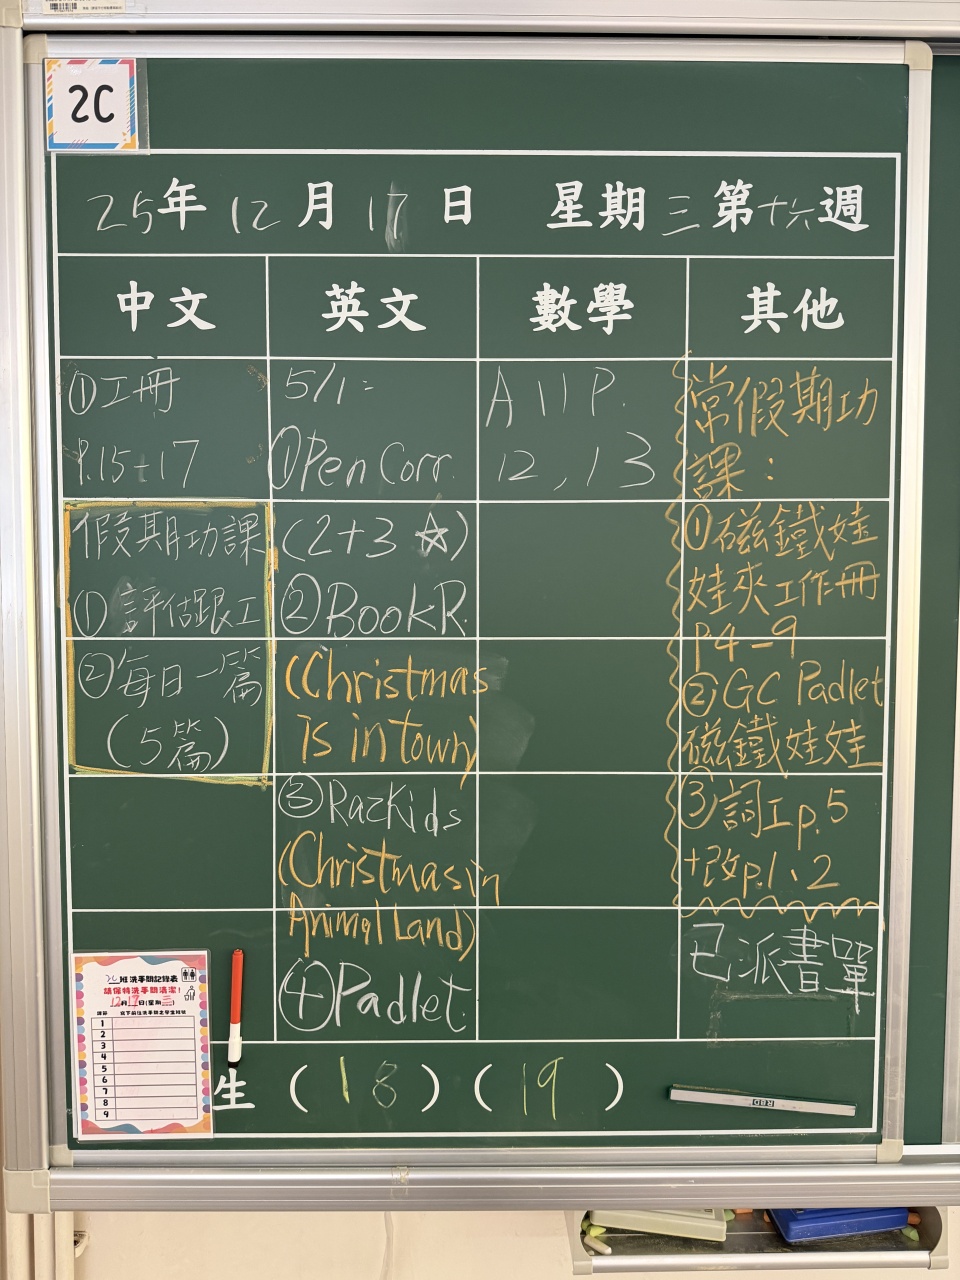 2C
25年12月17日 星期三第十六週
中文 英文 數學 其他
①工冊
P.15-17
假期功課
①評估跟工
②每日一篇
(5篇)
5/1:
①Pen Corr.
(2+3 ☆)
②BookR.
(Christmas
is in town)
③RazKids
(Christmas in
Animal Land)
④Padlet
A11 P.
12, 13
常假期功
課:
①磁鐵娃
娃夾工作冊
p4-9
②GC Padlet
磁鐵娃娃
③詞工p.5
+改p.1、2
已派書單
2C班洗手間記錄表
請保持洗手間清潔!
12月17日(星期三)
1
2
3
4
5
6
7
8
9
生 (18)(19)